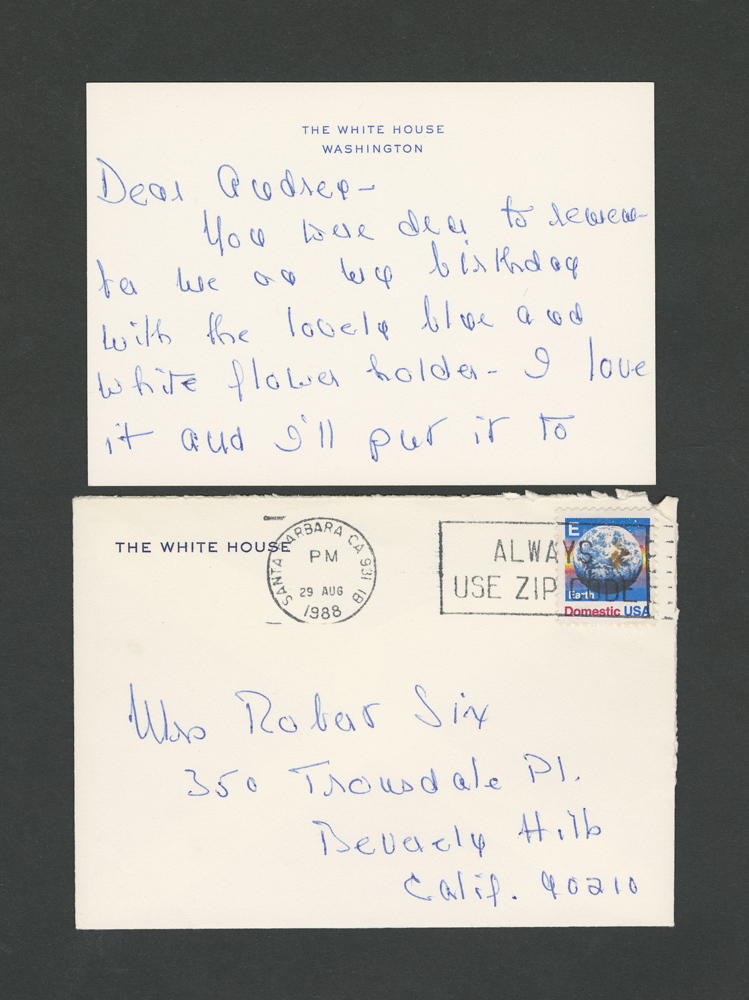 THE WHITE HOUSE
WASHINGTON
Dear Audrey-
You were dear to remem-
ber me on my birthday
with the lovely blue and
white flower holder- I love
it and I'll put it to
THE WHITE HOUSE
SANTA BARBARA CA 931 1B
PM
29 AUG
1988
ALWAYS
USE ZIP CODE
E
Earth
Domestic USA
Mrs Robert Six
350 Trousdale Pl.
Beverly Hills
Calif. 90210